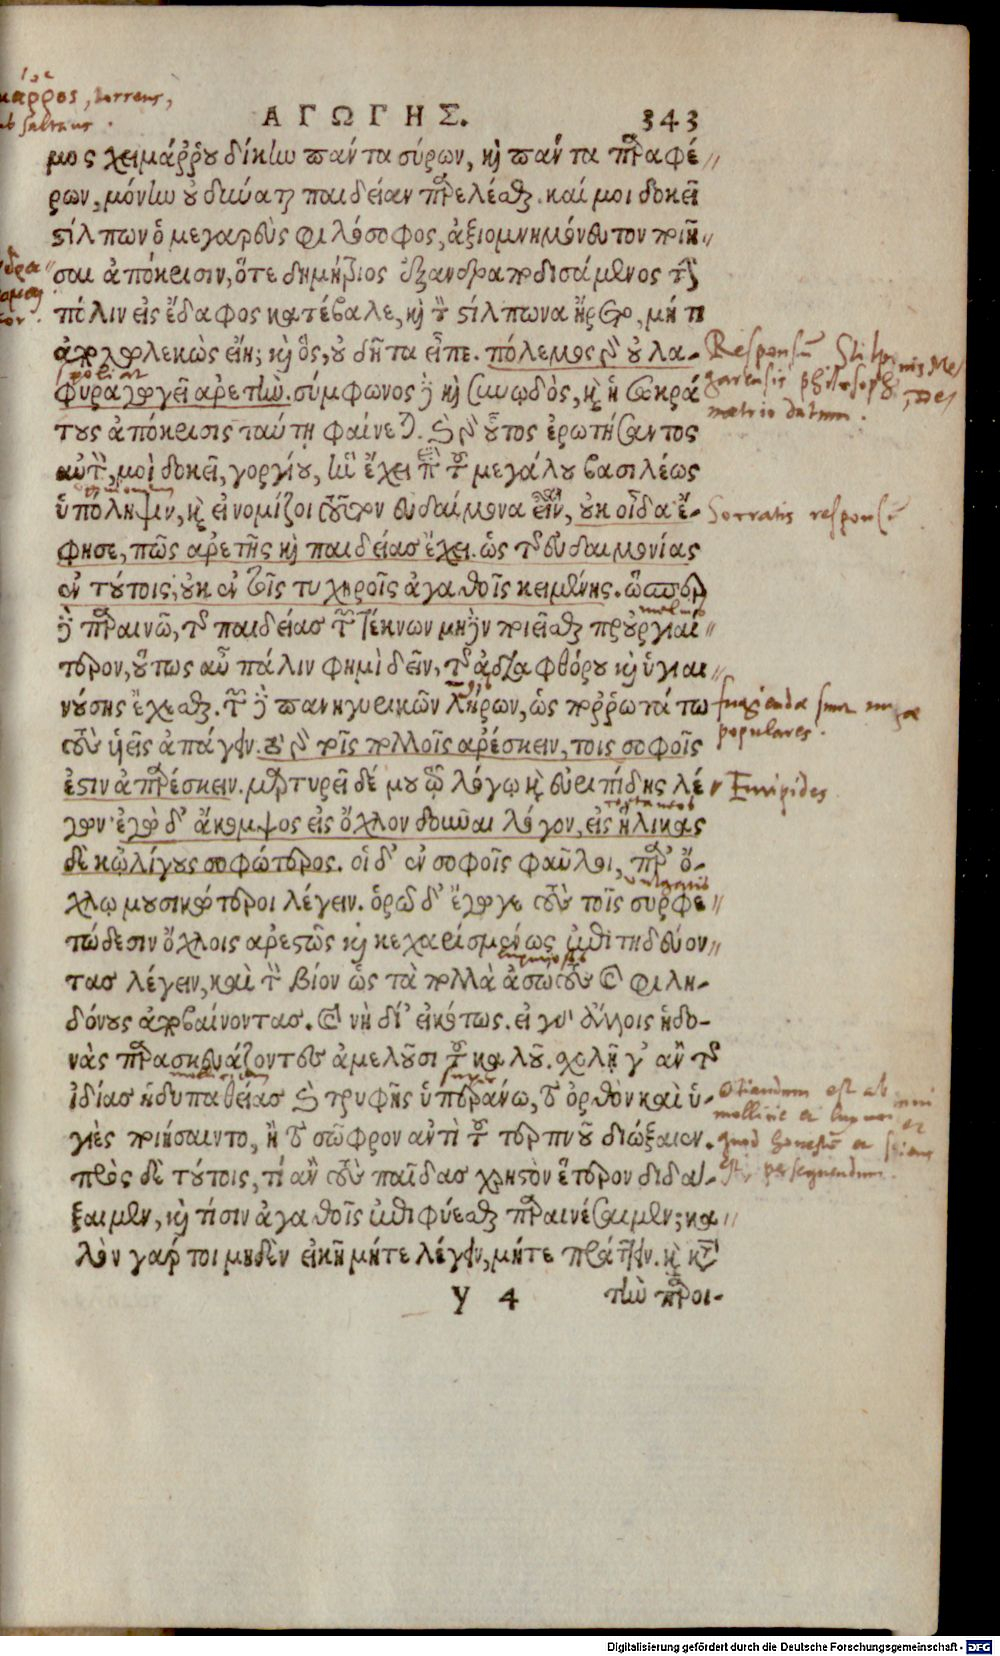 ΑΓΩΓΗΣ. 343
μος χειμάῤῥου δίκην πάντα σύρων, καὶ πάντα παραφέ-
ρων, μόνην οὐ δύναται παιδείαν παρελέσθαι. καί μοι δοκεῖ
στίλπων ὁ μεγαρεὺς φιλόσοφος, ἀξιομνημόνευτον ποιῆ-
σαι ἀπόκρισιν, ὅτε δημήτριος ἐξανδραποδισάμενος τὴν
πόλιν εἰς ἔδαφος κατέβαλε, καὶ τὸν στίλπωνα ἤρετο, μή τι
ἀπολωλεκὼς εἴη; καὶ ὃς, οὐ δῆτα εἶπε. πόλεμος γὰρ οὐ λα-
φυραγωγεῖ ἀρετήν. σύμφωνος δὲ καὶ συνῳδὸς, καὶ ἡ σωκρά
τους ἀπόκρισις ταύτῃ φαίνεται. καὶ γὰρ οὗτος ἐρωτήσαντος
αὐτὸν, μοὶ δοκεῖ, γοργίου, ἣν ἔχει περὶ τοῦ μεγάλου βασιλέως
ὑπόληψιν, καὶ εἰ νομίζοι τοῦτον εὐδαίμονα εἶναι, οὐκ οἶδα ἔ-
φησε, πῶς ἀρετῆς καὶ παιδείας ἔχει. ὡς τῆς εὐδαιμονίας
ἐν τούτοις, οὐκ ἐν τοῖς τυχηροῖς ἀγαθοῖς κειμένης. ὥσπερ
δὲ παραινῶ, τῆς παιδείας τῶν τέκνων μηδὲν ποιεῖσθαι προὐργιαί-
τερον, οὕτως αὖ πάλιν φημὶ δεῖν, τῆς ἀδιαφθόρου καὶ ὑγιαι-
νούσης ἔχεσθαι. τῶν δὲ πανηγυρικῶν λήρων, ὡς ποῤῥωτάτω
τοὺς υἱεῖς ἀπάγειν. τὸ γὰρ τοῖς πολλοῖς ἀρέσκειν, τοῖς σοφοῖς
ἐστὶν ἀπαρέσκειν. μαρτυρεῖ δέ μου τῷ λόγῳ καὶ εὐριπίδης λέ
γων· ἐγὼ δ' ἄκομψος εἰς ὄχλον δοῦναι λόγον, εἰς ἥλικας
δὲ κὠλίγους σοφώτερος. οἱ δ' ἐν σοφοῖς φαῦλοι, παρ' ὄ-
χλῳ μουσικώτεροι λέγειν. ὁρῶ δ' ἔγωγε τοὺς τοῖς συρφε-
τώδεσιν ὄχλοις ἀρεστῶς καὶ κεχαρισμένως ἐπιτηδεύον-
τας λέγειν, καὶ τὸν βίον ὡς τὰ πολλὰ ἀσώτους καὶ φιλη-
δόνους ἀποβαίνοντας. καὶ νὴ δί' εἰκότως. εἰ γὰρ ἄλλοις ἡδο-
νὰς παρασκευάζοντες ἀμελοῦσι τοῦ καλοῦ. σχολῇ γ' ἂν τῆς
ἰδίας ἡδυπαθείας καὶ τρυφῆς ὑπεράνω, τὸ ὀρθὸν καὶ ὑ-
γιὲς ποιήσαιντο, ἢ τὸ σῶφρον ἀντὶ τοῦ τερπνοῦ διώξαιεν.
πρὸς δὲ τούτοις, τί ἂν τοὺς παῖδας χρηστὸν ἕτερον διδάξ-
ξαιμεν, καὶ τίσιν ἀγαθοῖς ἐπιφύεσθαι παραινέσαιμεν; κα
λὸν γάρ τοι μηδὲν εἰκῆ μήτε λέγειν, μήτε πράττειν. καὶ κατὰ
y 4 τὴν παροι-
Responsum Stilponis Me-
garensis philosophi, De-
metrio datum.
Socratis responsum
fugiendae sunt nugae
populares.
Euripides
Digitalisierung gefördert durch die Deutsche Forschungsgemeinschaft - DFG